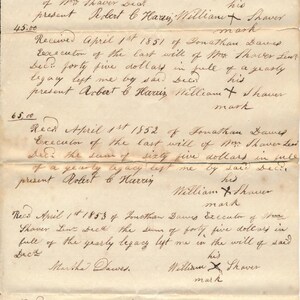 of Wm Shaver Decd his
present Robert C Harris William X Shaver
mark
45.00
Received April 1st 1851 of Jonathan Dawes
Executor of the last will of Wm Shaver Senr
Decd forty five dollars in full of a yearly
legacy left me by said Decd his
present Robert C Harris William X Shaver
mark
65.00
Recd April 1st 1852 of Jonathan Dawes
Executor of the last will of Wm Shaver Senr
Decd the sum of sixty five dollars in full
of a yearly legacy left me by said Decd
present Robert C Harris his
William X Shaver
mark
Recd April 1st 1853 of Jonathan Dawes Executor of Wm
Shaver Senr Decd the sum of forty five dollars in
full of the yearly legacy left me in the will of said
Decd his
Martha Dawes. William X Shaver
mark